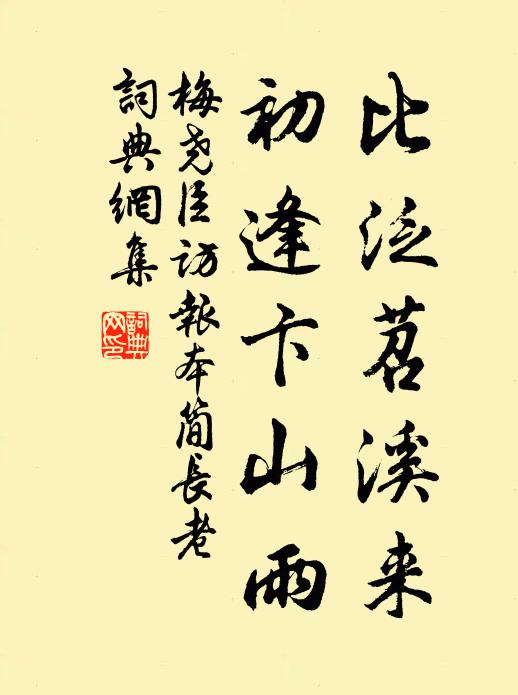 比泛苕溪来
初逢卞山雨
梅尧臣访报本简長老
詞典網集
詞典
网印